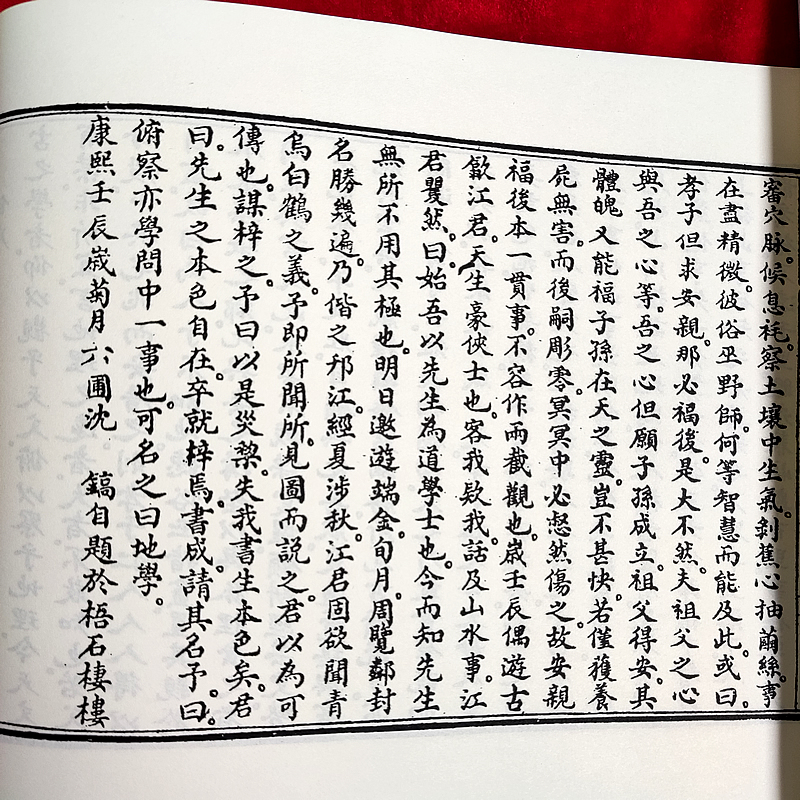 審穴脉。候息秏。察土壤中生氣。剝蕉心抽繭絲。事
在盡精微。彼俗巫野師。何等智慧而能及此。或曰。
孝子但求安親。那必福後。是大不然。夫祖父之心
與吾之心等。吾之心但願子孫成立。祖父得安。其
體魄又能福子孫。在天之靈豈不甚快。若僅獲養
屍無害。而後嗣彫零。冥冥中必愀然傷之。故安親
福後本一貫事。不容作兩截觀也。嵗壬辰偶遊古
歙江君。天生豪俠士也。客我欵我。話及山水事。江
君瞿然。曰始吾以先生為道學士也。今而知先生
無所不用其極也。明日邀遊端金。旬月。周覽鄰封
名勝幾遍。乃偕之邗江。經夏涉秋。江君固欲聞青
烏白鶴之義。予即所聞所見圖而說之。君以為可
傳也。謀梓之。予曰以是災棃。失我書生本色矣。君
曰。先生之本色自在。卒就梓焉。書成。請其名予。曰。
俯察亦學問中一事也。可名之曰地學。
康熙壬辰嵗菊月六圃沈 鎬自題於梧石棲樓